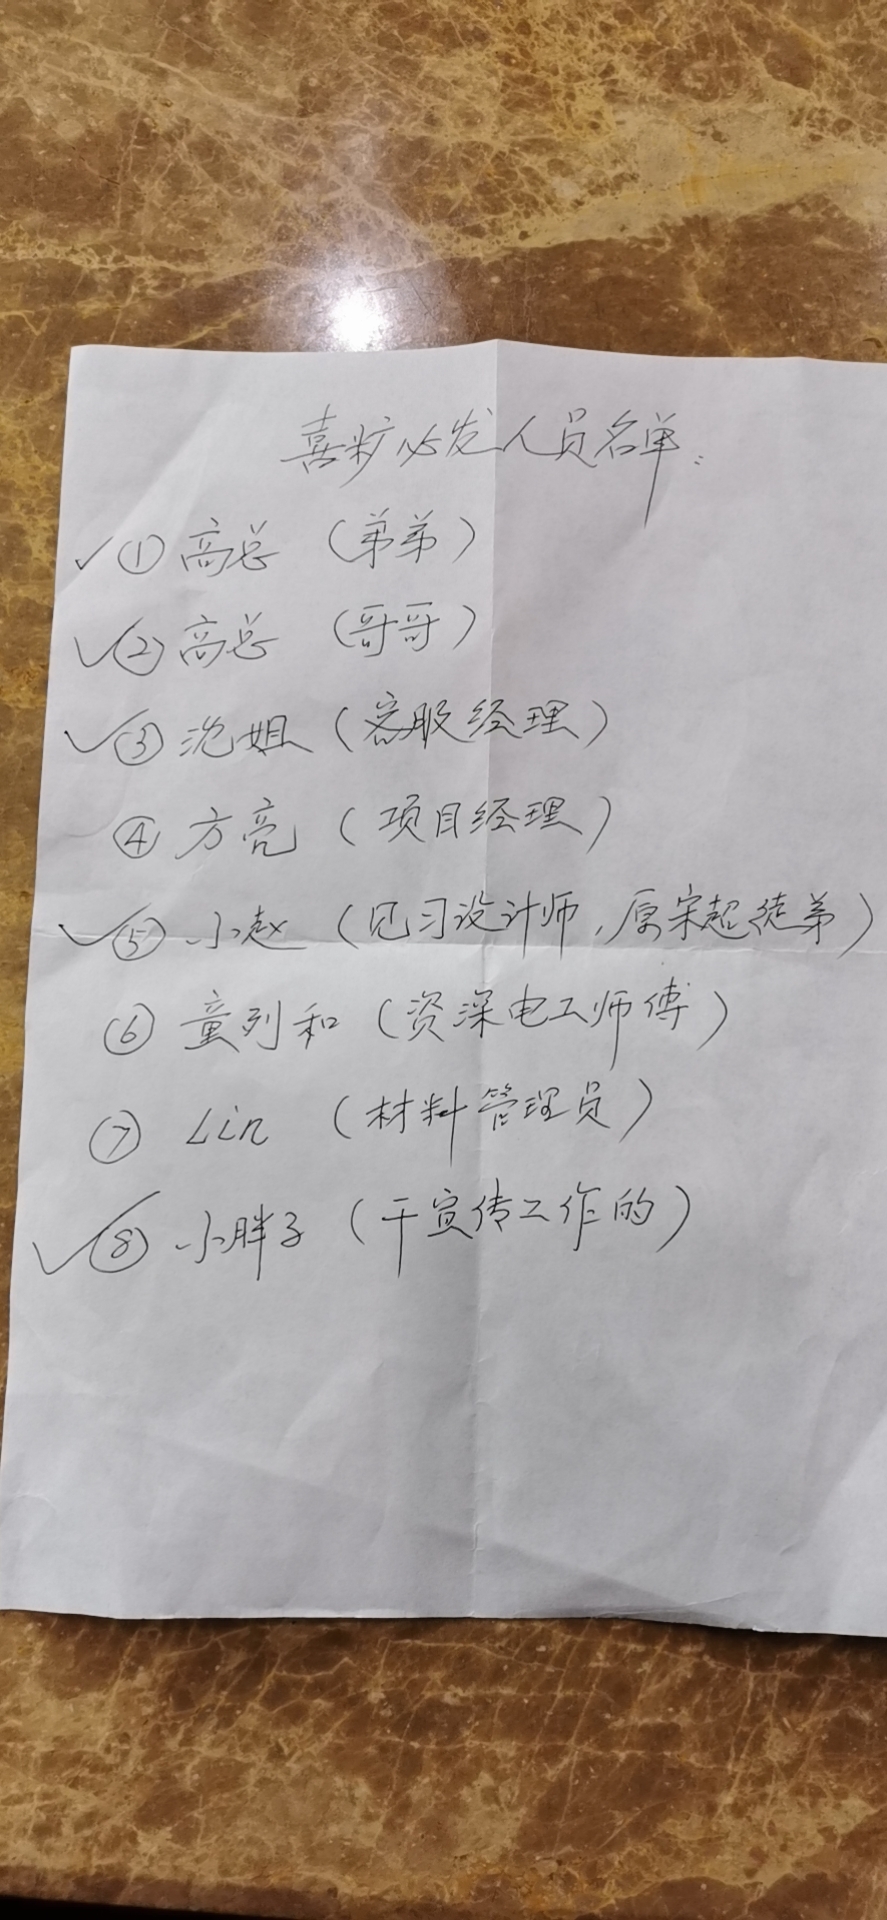 喜糖必发人员名单:
✓ ① 高总 (弟弟)
✓ ② 高总 (哥哥)
✓ ③ 沈姐 (客服经理)
④ 方亮 (项目经理)
✓ ⑤ 小赵 (见习设计师,原宋超徒弟)
⑥ 童列和 (资深电工师傅)
⑦ Lin (材料管理员)
✓ ⑧ 小胖子 (干宣传工作的)